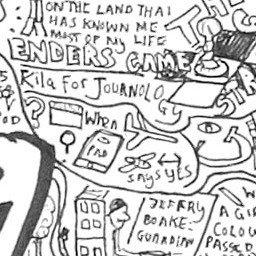 ON THE LAND THAT
HAS KNOWN ME
MOST OF MY LIFE
THE
ENDERS' GAME
STAR
Rila FOR JOURNOLO
GY
?
WHEN
PAD
SAYS YES
JEFFERY
BOAKE-
GUARDIAN
W
A GIR
COLOU
PASSED